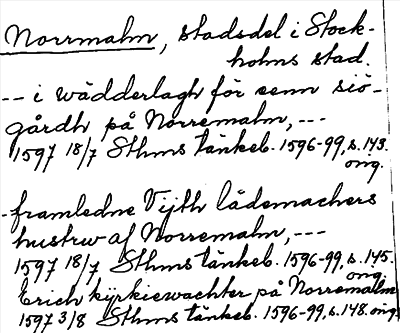 Norrmalm, stadsdel i Stock-
holms stad.
--- i wädderlagh för eenn siö-
gårdh på Norremalm, ---
1597 18/7 Sthms tänkeb. 1596-99, s. 143.
orig.
framledne Vijth lädemachers
hustrw af Norremalm, ---
1597 18/7 Sthms tänkeb. 1596-99, s. 145.
orig.
Erich kyrkiewachter på Norremalm
1597 3/8 Sthms tänkeb. 1596-99, s. 148. orig.